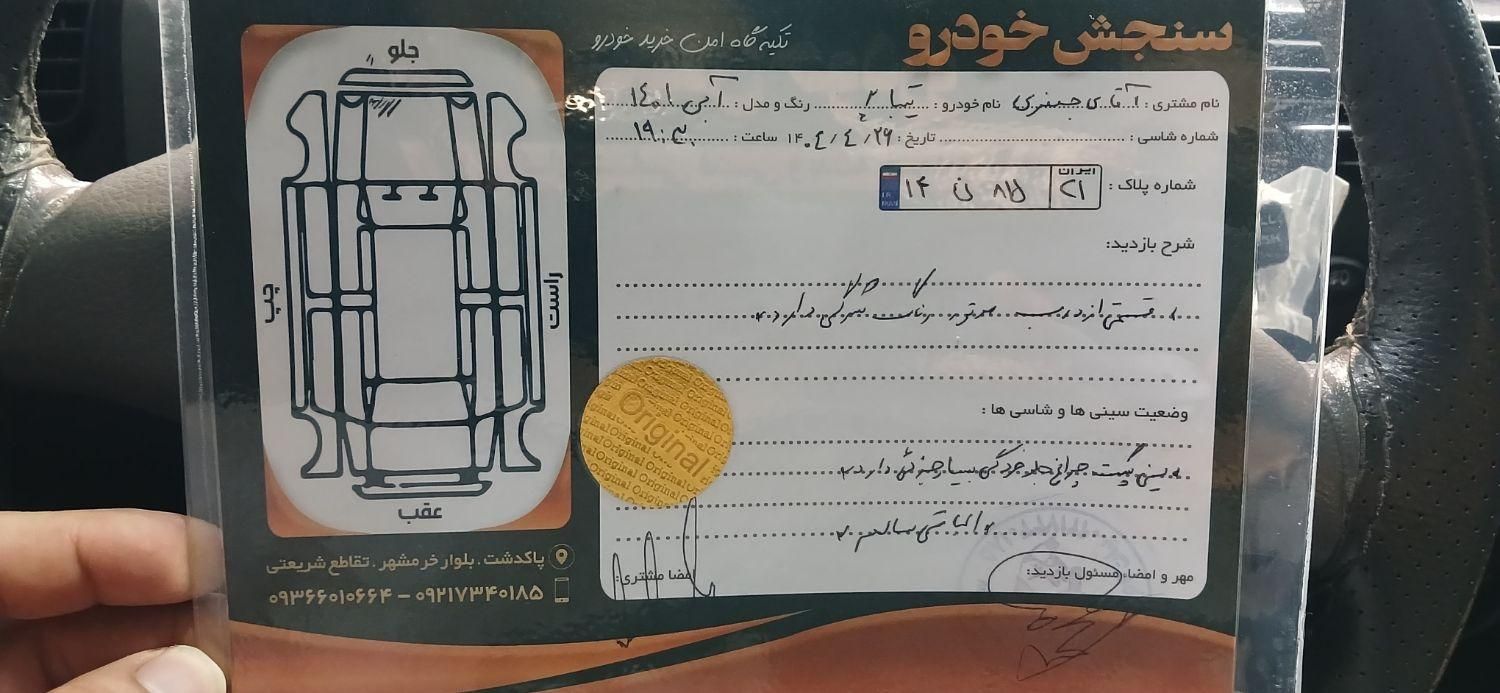 سنجش خودرو
تکیه گاه امن خرید خودرو
نام مشتری: آقای جعفری نام خودرو: تیبا ۲ رنگ و مدل: آبی ۱۴۰۱
شماره شاسی: تاریخ: ۱۴۰۴/۴/۲۶ ساعت: ۱۹:۳۰
شماره پلاک: ۱۴ ن ۸۱۵ ایران ۲۱
I.R. IRAN
شرح بازدید:
قسمتی از درب موتور رنگ دارد
وضعیت سینی ها و شاسی ها:
سینی پشت چراغ جلو خوردگی بسیار جزئی دارد
شاسی سالم
مهر و امضاء مسئول بازدید:
امضا مشتری:
Original
جلو
چپ
راست
عقب
پاکدشت. بلوار خرمشهر. تقاطع شریعتی
۰۹۳۶۶۰۱۰۶۶۴ – ۰۹۲۱۷۳۴۰۱۸۵